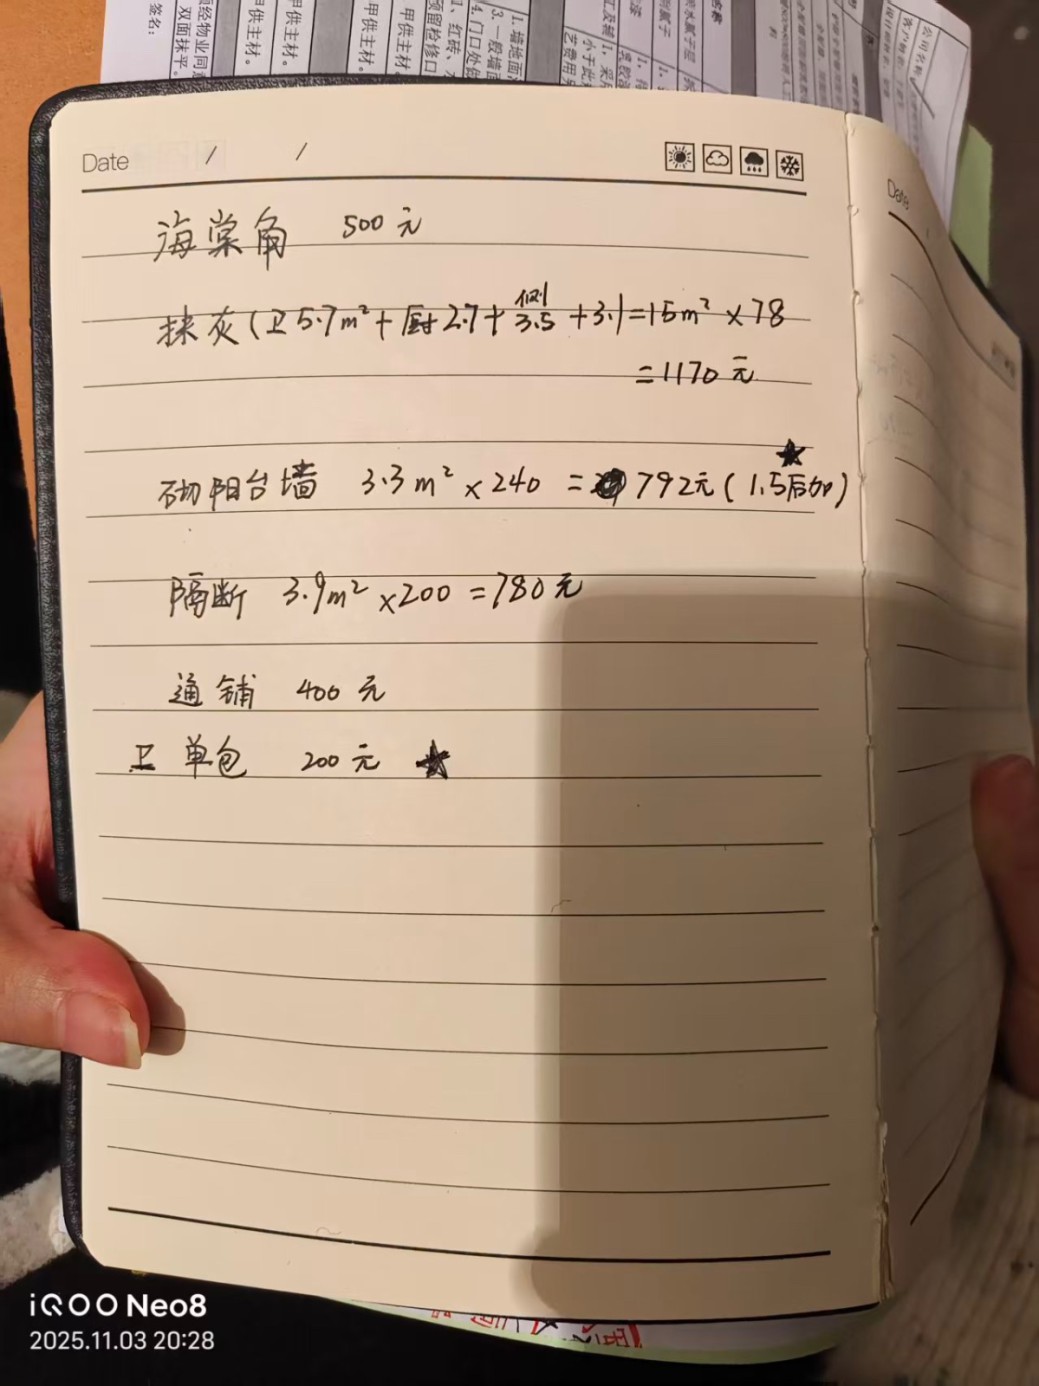 Date / /
海棠角 500元
抹灰(卫5.7m²+厨2.7+侧3.5+3.1=15m²×78
=1170元
砌阳台墙 3.3m²×240=792元(1.5后加)
隔断 3.9m²×200=780元
通铺 400元
卫单包 200元
Date
iQOO Neo8
2025.11.03 20:28
签名:
双面抹平。
甲供主材。
甲供主材。
预留检修口